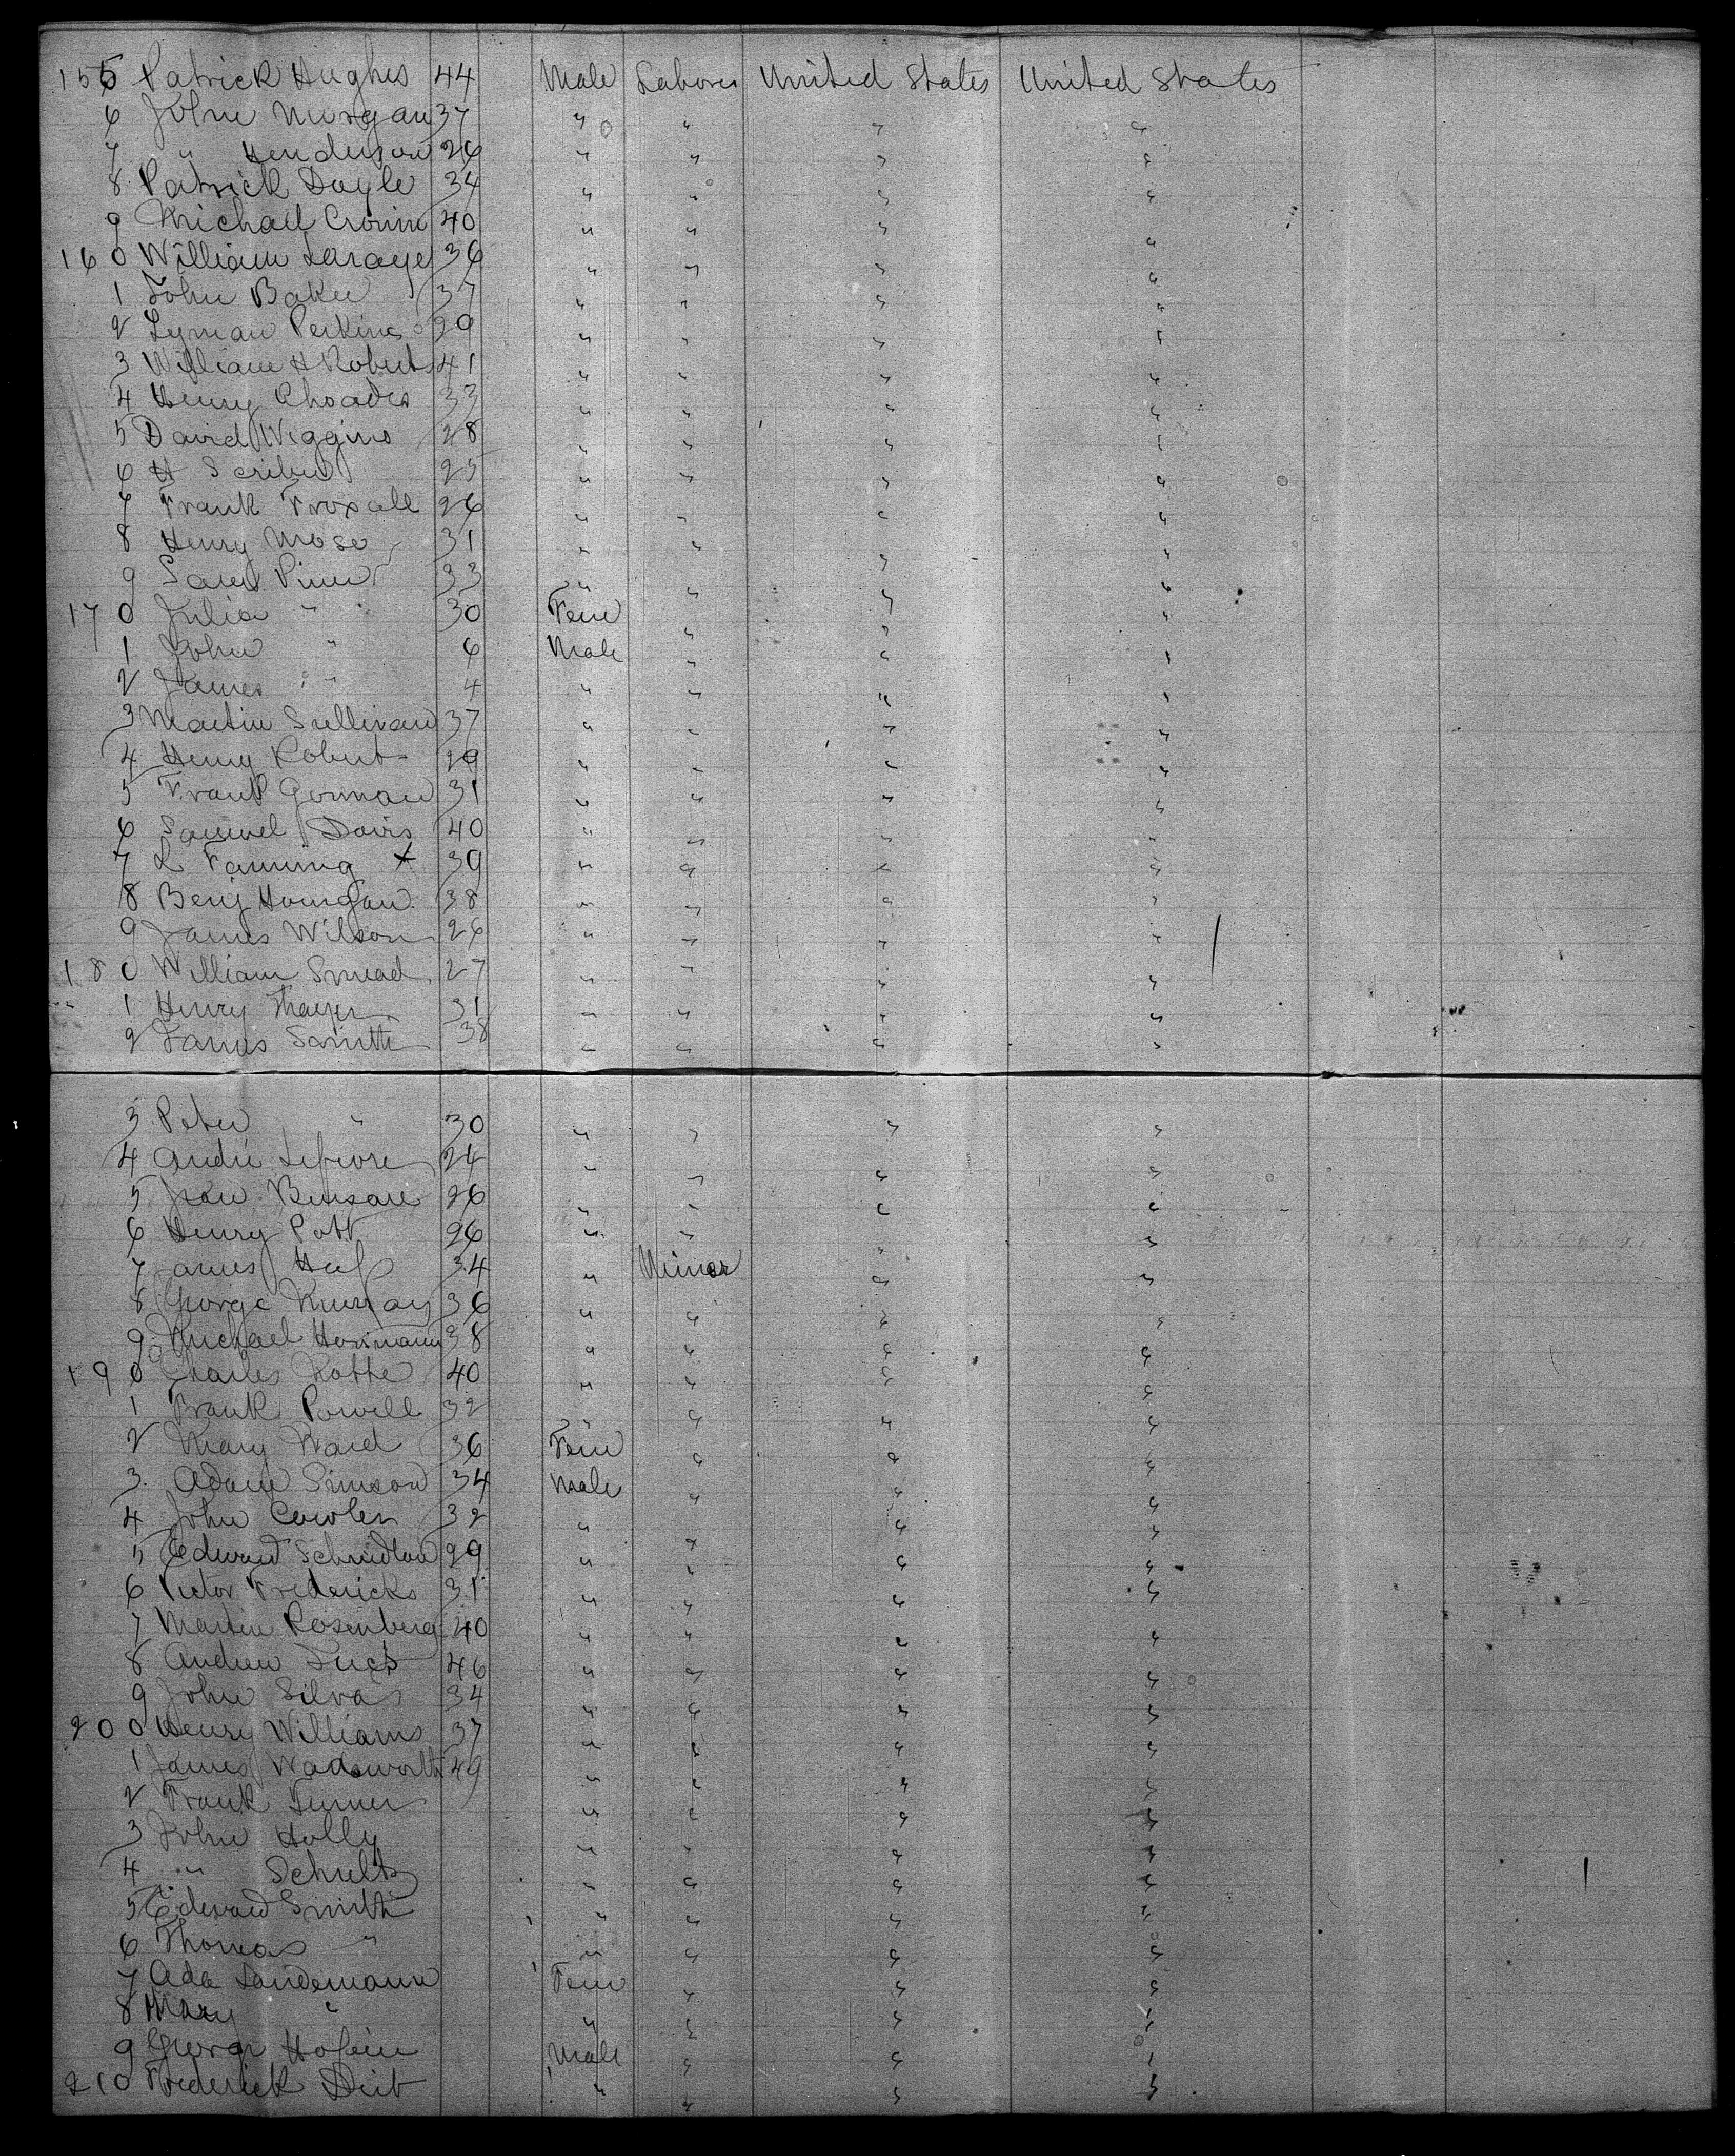 155 Patrick Hughes 44 Male Laborer United States United States
6 John Morgan 37 " " " "
7 " Henderson 26 " " " "
8 Patrick Doyle 34 " " " "
9 Michael Cronin 40 " " " "
160 William 36 " " " "
1 John Baker 37 " " " "
2 Lyman Perkins 29 " " " "
3 William H Roberts 41 " " " "
4 Henry Rhoades 33 " " " "
5 David Wiggins 28 " " " "
6 H 25 " " " "
7 Frank Troxall 26 " " " "
8 Henry Mose 31 " " " "
9 33 " " " "
170 Julia " 30 Fem " " "
1 John " 6 Male " " "
2 James " 4 " " " "
3 Martin Sullivan 37 " " " "
4 Henry Robert 29 " " " "
5 Frank Gorman 31 " " " "
6 Samuel Davis 40 " " " "
7 L Fanning x 39 " " " "
8 Benj 38 " " " "
9 James Wilson 26 " " " "
180 William Smead 27 " " " "
1 Henry Thayer 31 " " " "
2 James Smith 38 " " " "
3 Peter " 30 " " " "
4 Andre Lefevre 24 " " " "
5 Jean 26 " " " "
6 Henry Pott 26 " " " "
7 James 34 " Miner " "
8 George Murray 36 " " " "
9 Michael Hermann 38 " " " "
190 Charles Rothe 40 " " " "
1 Frank Powell 32 " " " "
2 Mary Ward 36 Fem " " "
3 Adam Simson 34 Male " " "
4 John Cowles 32 " " " "
5 Edward 29 " " " "
6 Victor Fredericks 31 " " " "
7 Martin Rosenberg 40 " " " "
8 Andrew 46 " " " "
9 John Silvas 34 " " " "
200 Henry Williams 37 " " " "
1 James Wadsworth 49 " " " "
2 Frank Turner " " " "
3 John Holly " " " "
4 " Schultz " " " "
5 Edward Smith " " " "
6 Thomas " " " " "
7 Ada Landemann Fem " " "
8 Mary " " " " "
9 George Male " " "
210 Frederick " " " "